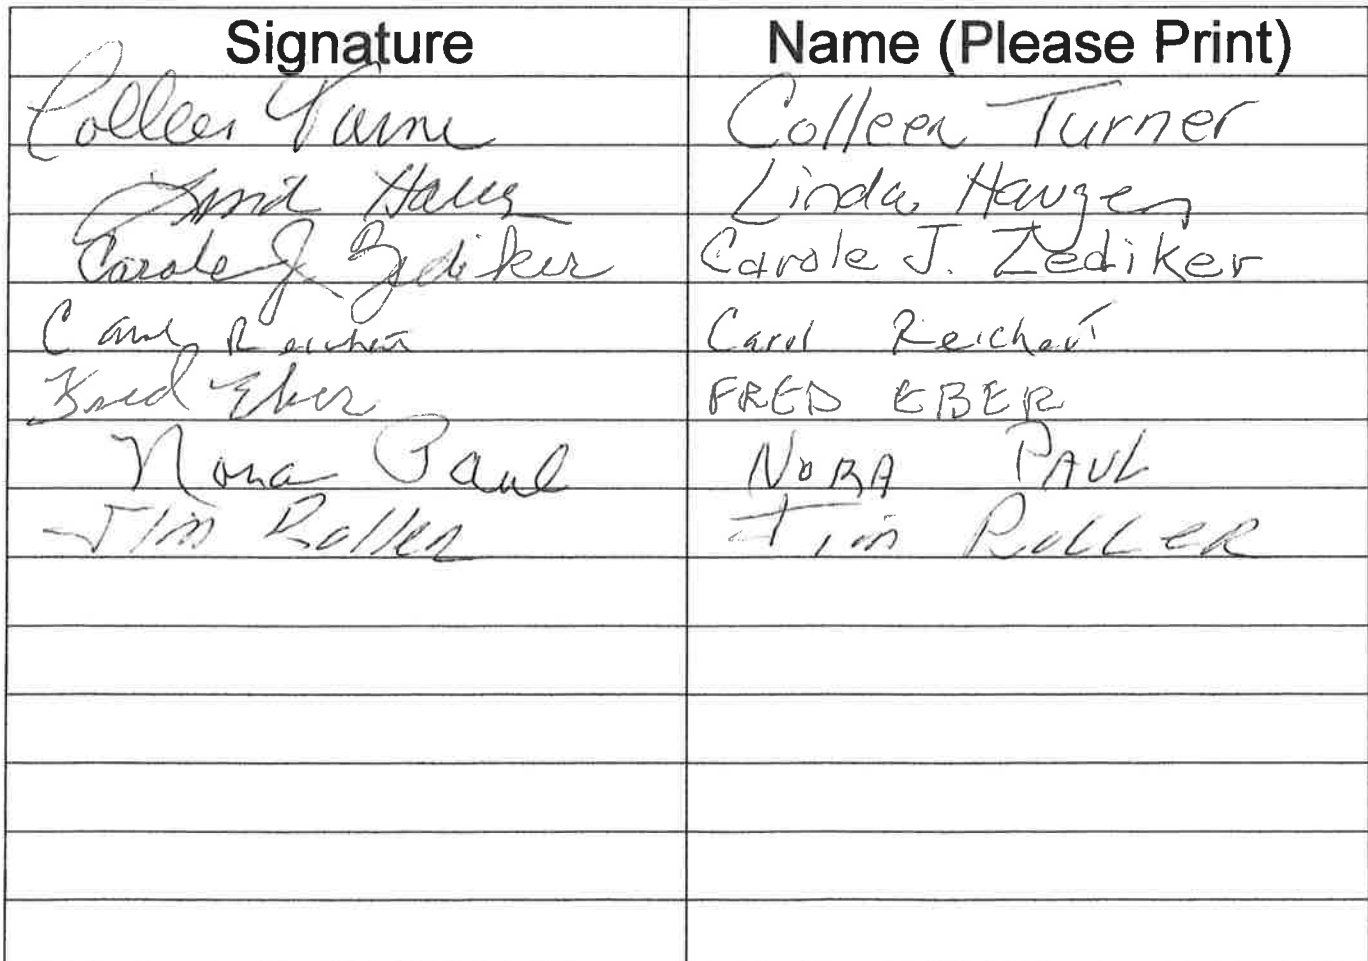 Signature Name (Please Print)
Colleen Turner Colleen Turner
Linda Haugen Linda Haugen
Carole J. Zediker Carole J. Zediker
Carol Reichert Carol Reichert
Fred Eber FRED EBER
Nora Paul NORA PAUL
Tim Roller Tim RoLLeR